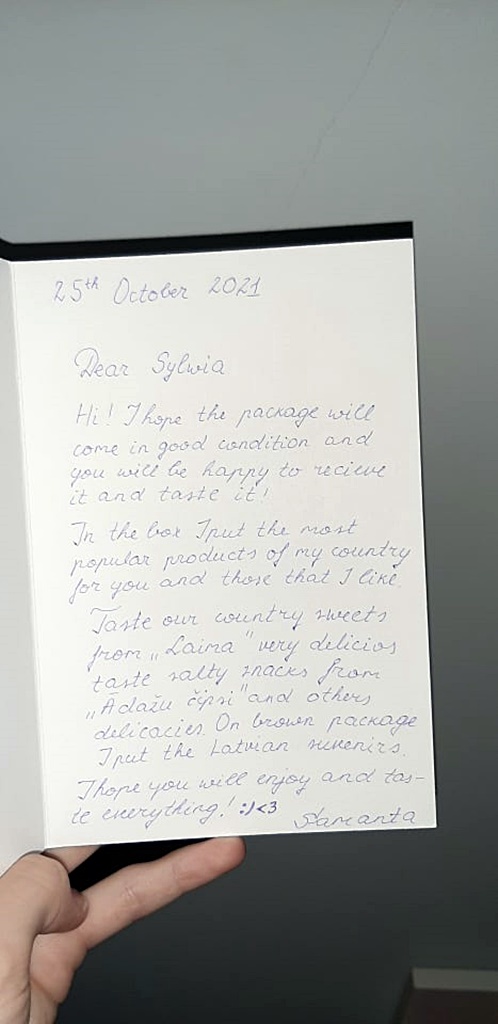 25th October 2021
Dear Sylwia
Hi! I hope the package will
come in good condition and
you will be happy to recieve
it and taste it!
In the box I put the most
popular products of my country
for you and those that I like.
Taste our country sweets
from „Laima" very delicios
taste salty snacks from
„Ādažu čipsi" and others
delicacies. On brown package
I put the Latvian suvenirs.
I hope you will enjoy and tas-
te everything! :)<3
Samanta